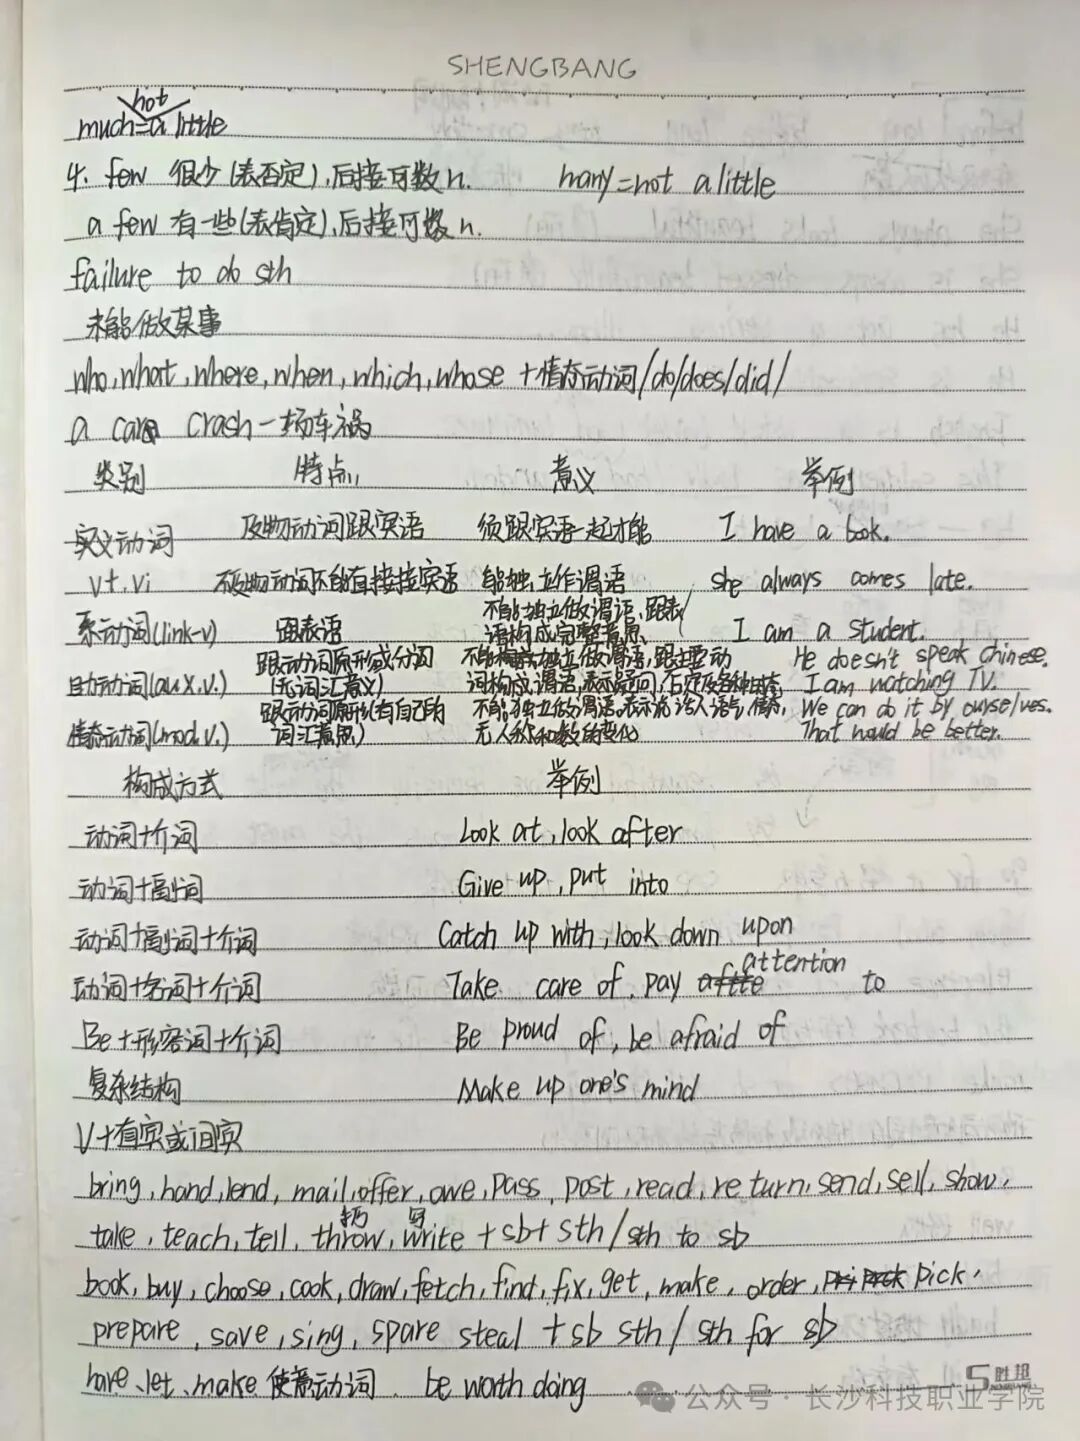 SHENGBANG
not
much=a little
4. few 很少(表否定),后接可数n. many=not a little
a few 有一些(表肯定),后接可数n.
failure to do sth
未能做某事
who,what,where,when,which,whose+情态动词/do/does/did/
a car crash一场车祸
类别 特点 意义 举例
实义动词 及物动词跟宾语 须跟宾语一起才能 I have a book.
vt.vi 不及物动词不能直接接宾语 能独立作谓语 she always comes late.
系动词(link-v) 跟表语 不能独立做谓语,跟表语构成完整意思 I am a student.
助动词(aux.v.) 跟动词原形或分词(无词汇意义) 不能独立做谓语,跟主要动词构成谓语,表示疑问,否定及各种时态 He doesn't speak chinese. I am watching TV.
情态动词(mod.v.) 跟动词原形(有自己的词汇意思) 不能独立做谓语,表示说话人语气,情态,无人称和数的变化 We can do it by ourselves. That would be better.
构成方式 举例
动词+介词 Look at,look after
动词+副词 Give up,put into
动词+副词+介词 Catch up with,look down upon
动词+名词+介词 Take care of,pay attention to
Be+形容词+介词 Be proud of,be afraid of
复杂结构 Make up one's mind
V+直宾或间宾
bring,hand,lend,mail,offer,owe,pass,post,read,return,send,sell,show,
扔 写
take,teach,tell,throw,write+sb+sth/sth to sb
book,buy,choose,cook,draw,fetch,find,fix,get,make,order,pick,
prepare,save,sing,spare steal+sb sth/sth for sb
have、let、make 使意动词 be worth doing
胜邦
公众号·长沙科技职业学院